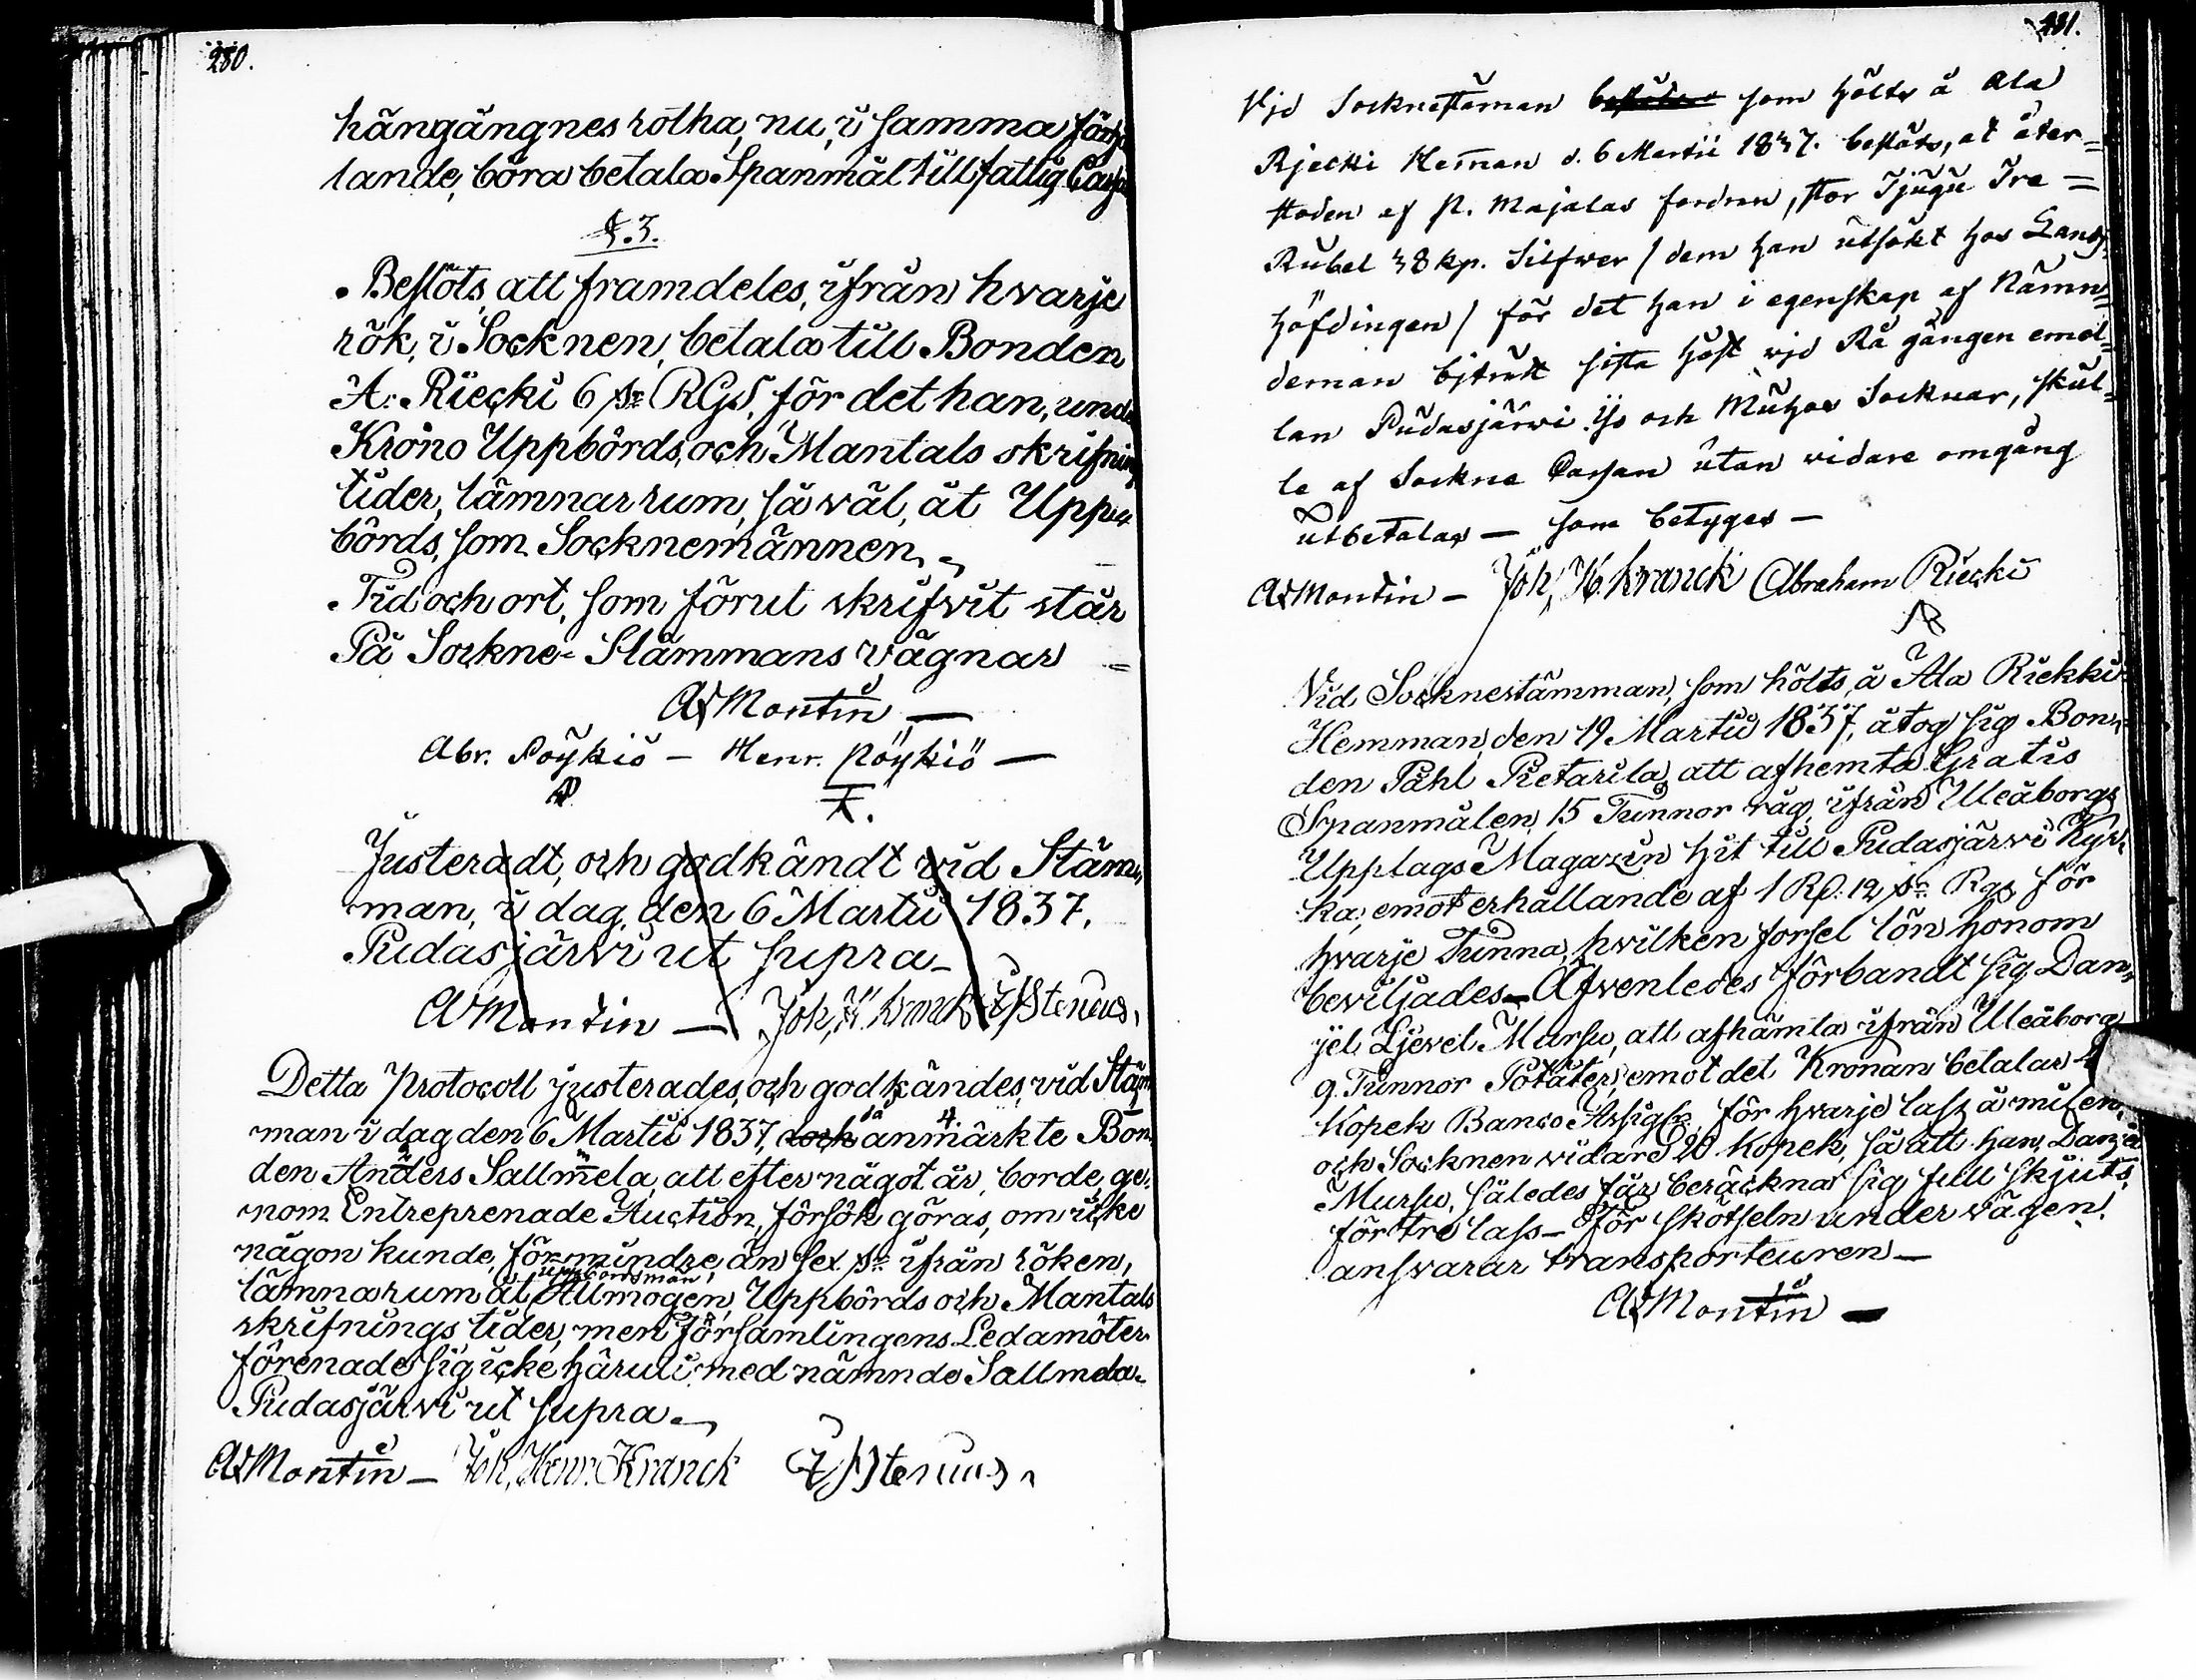 280.
hängångnes rotha, nu, i samma för,,
lande, böra betala Spanmål till fattig Cass
§. 3.
Beslöts, att framdeles, ifrån hvarje
rök, i Socknen, betalas till Bonden
A: Riecki 6 sr RGS, för det han, unde
Krono Uppbörds, och Mantals skrifning
tider, lämnar rum, så väl, åt Upp=
börds, som Socknemännen,
Tid och ort, som förut skrifvit står
På Sockne-Stämmans vägnar
AMontin —
Abr. Pöykiö — Henr. Pöykiö —
Justeradt, och godkändt vid Stäm,,
man, i dag, den 6 Martii 1837.
Pudasjärvi ut supra_
AMontin — Joh, H. Kranck
Detta Protocoll justerades, och godkändes, vid Stäm
man i dag den 6 Martii 1837, dock så anmärkte Bon,
den Anders Sallmela, att efter något år, borde, ge,
nom Entreprenade Auction, försök göras, om icke
någon kunde, för mindre, än sex sr ifrån röken,
uppbördsmän,
lämna rum åt Allmogen, Uppbörds och Mantals
skrifnings tider, men Församlingens Ledamöter
förenade sig icke häruti med nämnde Sallmela.
Pudasjärvi ut supra_
AMontin — Joh, Henr. Kranck
281.
Vjd Socknestäman som hölts å Ala
Rjecki Heman d. 6 Martii 1837. beslöts, at åter=
stoden af P. Majalas fordran, stor Tjugu Tre =
Rubel 38 kp. Silfwer / dem han utsökt hos Lands
höfdingen / för det han i egenskap af Nämn=
deman bjtrått sista höst vjd Rå gången emel=
lan Pudasjärwi Ijo och Muhos Socknar, skul=
le af Sockne Cassan utan vidare omgång
utbetalas — som betyges —
AMontin — Joh, H. Kranck Abraham Riecki
Vid Socknestämman, som hölts, å Ala Riekki
Hemman, den 19 Martii 1837, åtog sig Bon,,
den Påhl Pietarila, att afhemta Gratis
Spanmålen, 15 Tunnor råg, ifrån Uleåborgs
Upplags Magazin hit till Pudasjärvi Kyr,
ka, emot erhållande af 1 Rß. 12 sr Rgs för
hvarje Tunna, hvilken forsel lön honom
beviljades — Äfvenledes förbandt sig Dan,,
jel Ljevel Mursu, att afhämta ifrån Uleåborg
9 Tunnor Potäter, emot det Kronan betalar
Kopek Banco Assigß, för hvarje lass å milen,
och Socknen vidare 20 Kopek, så att han, Danjel
Mursu, således får beräckna sig full skjuts,
för tre lass — För skötseln under vägen,
ansvarar transporteuren —
AMontin —